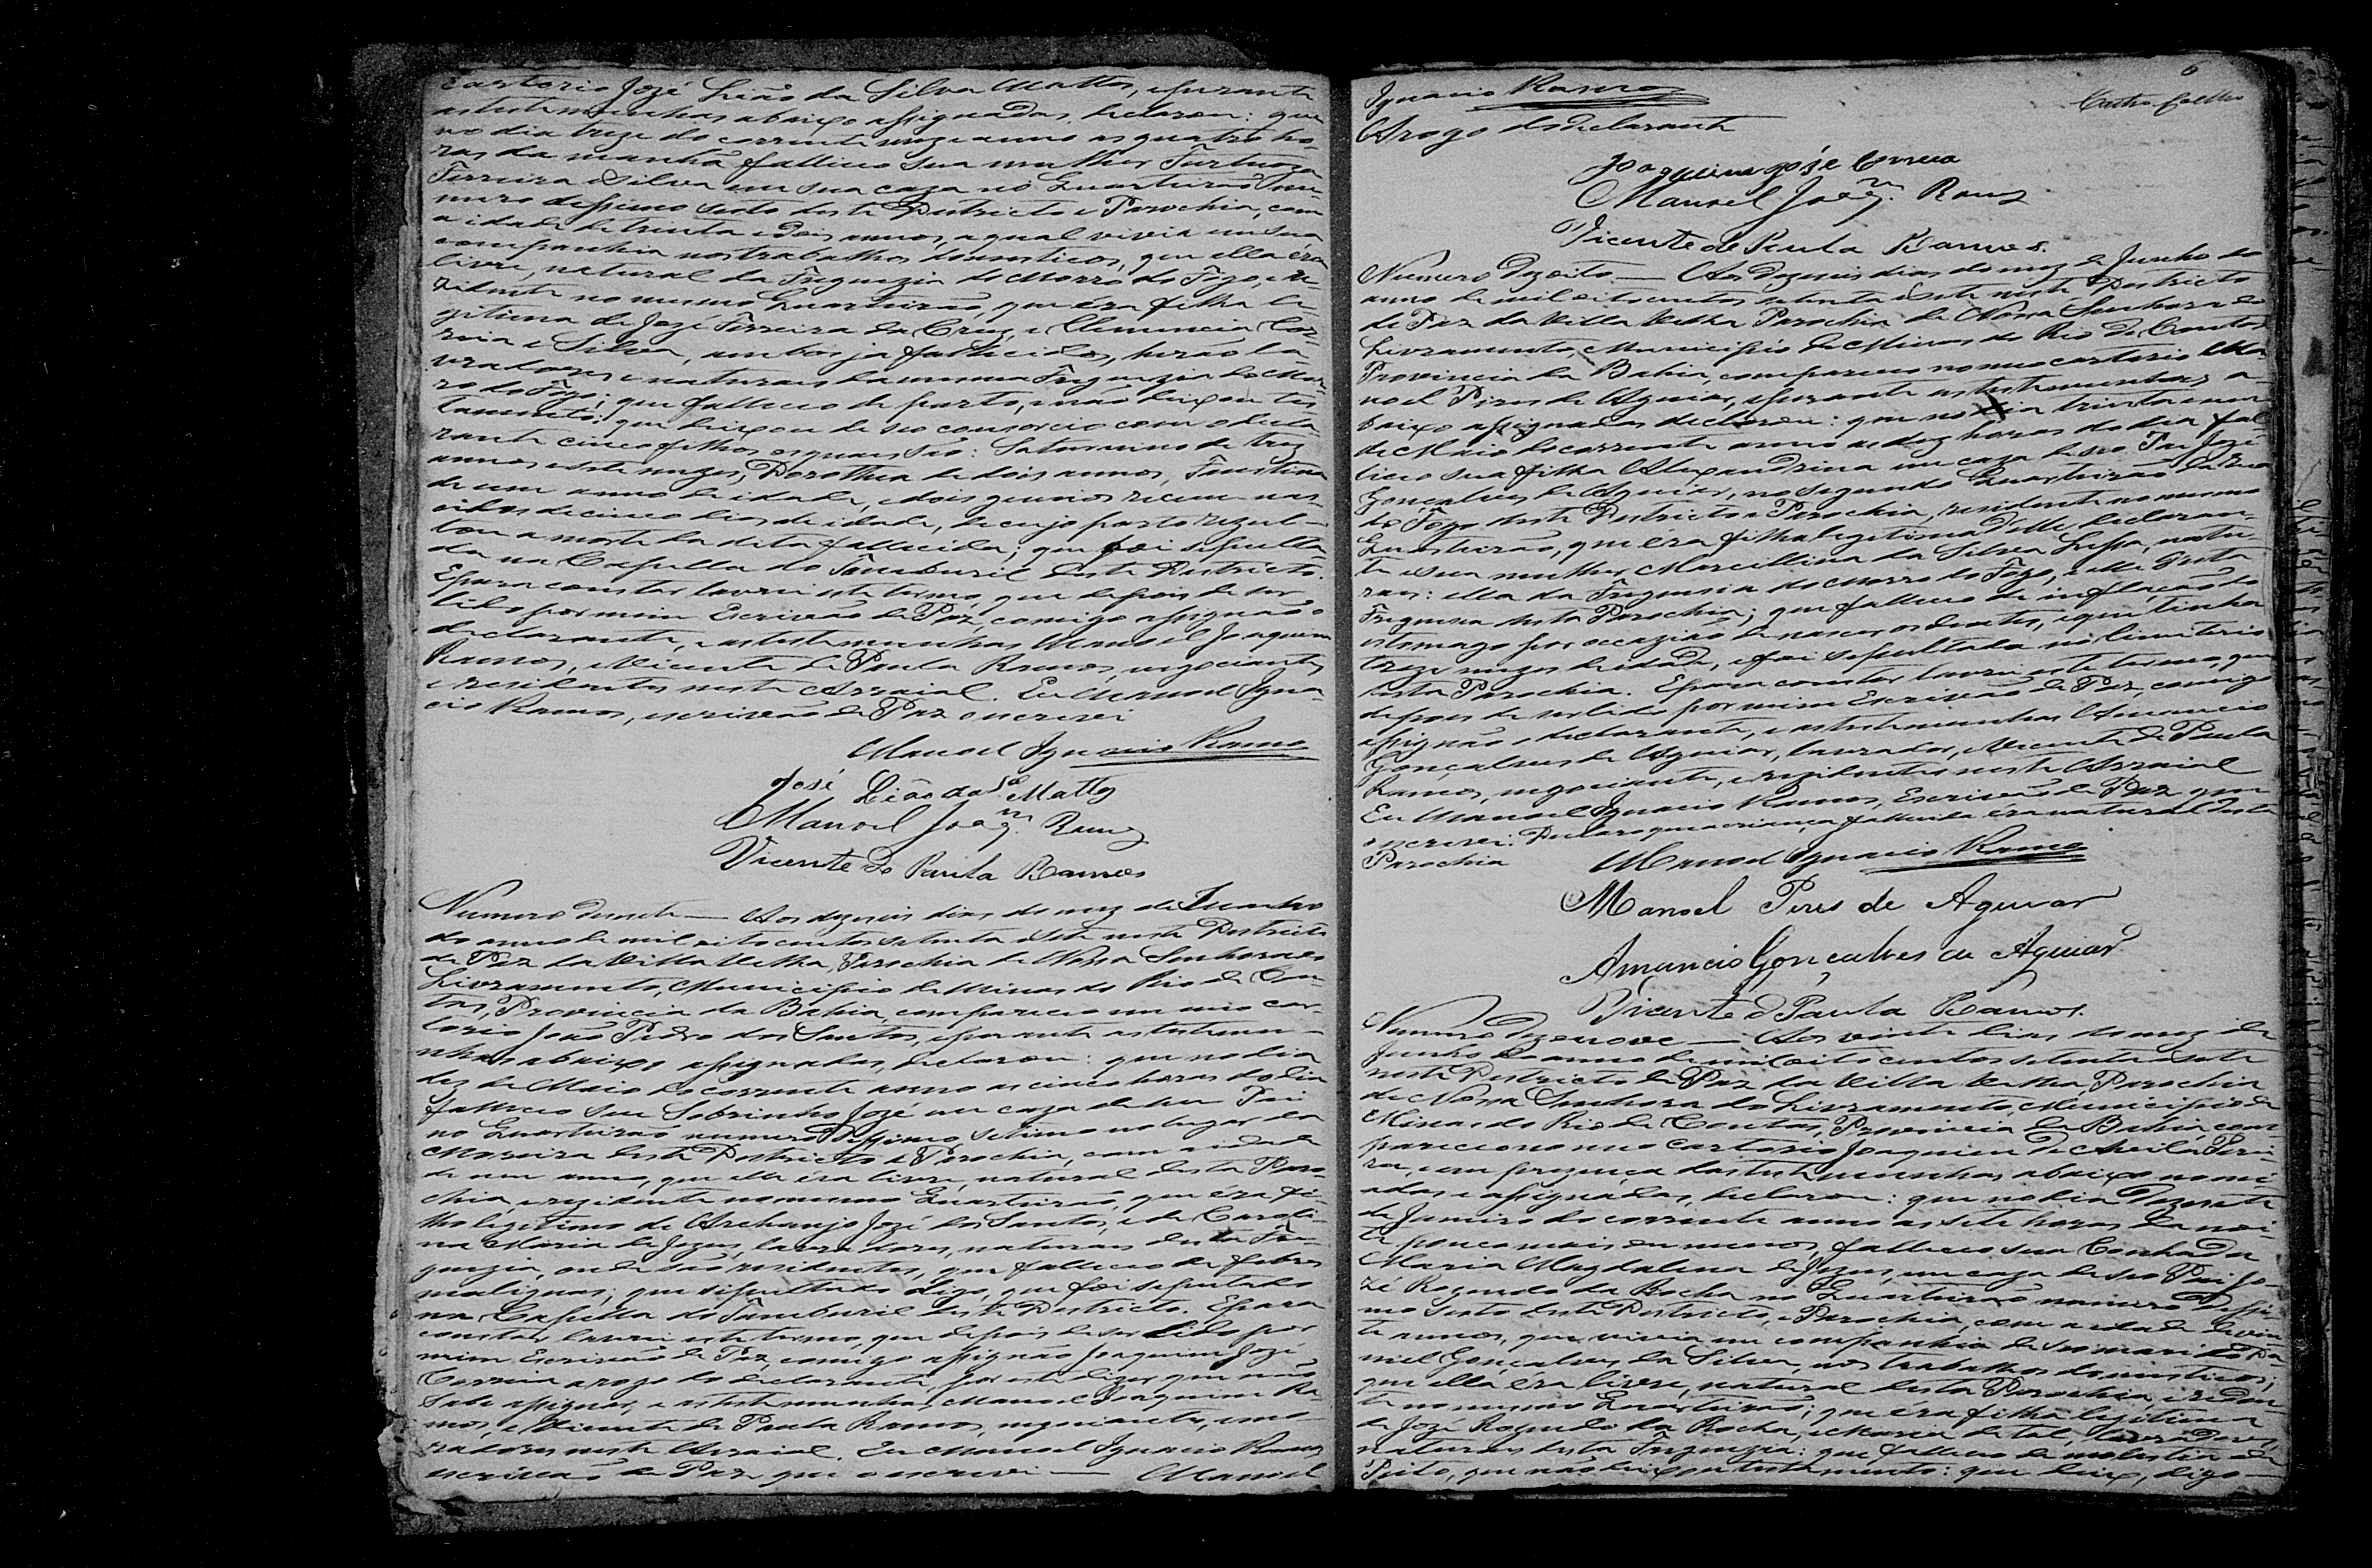 Cartorio José Leão da Silva Mattos, e perante
as testemunhas abaixo assignadas, declarou: que
no dia treze do corrente mez e anno as quatro ho-
ras da manhã falleceo sua mulher
Ferreira e Silva em sua caza no Quarteirão nu-
mero dessimo sesto deste Destricto e Parochia, com
a idade de trinta e dois annos, a qual vivia em sua
companhia nos trabalhos domesticos, que ella éra
livre, natural da Freguezia do Morro do Fogo, e re-
zidente no mesmo Quarteirão, que éra filha le-
gitima de José Ferreira da Cruz, e Clemencia
e Silva, ambos ja fallecidos, herão la-
vradores e naturais da mesma Freguezia do Mor-
ro do Fogo; que falleceo de parto, e não deixou tes-
tamento; que deixou de seo consorcio com o decla-
rante cinco filhos os quais são: Saturnino de trez
annos e sete mezes, Dorothea de dois annos, Faustina
de um anno de idade, e dois gemios recem nas-
cidos de cinco dias de idade, de cujo parto rezul-
tou a morte da dita fallecida; que foi sepulta-
da na Capella do Tamburil deste Destricto.
E para constar lavrei este termo, que depois de ser
lido por mim Escrivão de Paz, comigo assignão o
declarante, e as testemunhas Manoel Joaquim
Ramos, e Vicente de Paula Ramos, negociantes
e residentes neste Arraial. Eu Manoel Igna-
cio Ramos, escrivão de Paz o escrevi
Manoel Ignacio Ramos
José Leão da Sa Mattos
Manoel Joaqm. Ramos
Vicente de Paula Ramos
Numero desesete — Aos dezeseis dias do mez de Junho
do anno de mil oito centos setenta e sete neste Destricto
de Paz da Villa Velha, Parochia de Nossa Senhora do
Livramento, Municipio de Minas do Rio de Con-
tas, Provincia da Bahia, compareceo em meo car-
torio João Pedro dos Santos, e perante as testemu-
nhas abaixo assignadas, declarou: que no dia
dez de Maio do corrente anno as cinco horas do dia
falleceo seu Sobrinho José em caza de seu Pai
no Quarteirão numero dessimo setimo no lugar da
Moreira deste Destricto e Parochia, com a idade
de um anno, que elle era livre, natural desta Paro-
chia, e rezidente no mesmo Quarteirão, que éra fi-
lho legitimo de Archanjo José dos Santos, e de Caroli-
na Maria de Jezus, lavradores, naturais desta Fre-
guezia, onde são residentes, que falleceo de febres
malignas; que sepultado digo, que foi sepultado
na Capella do Tamburil deste Destricto. E para
constar lavrei este termo, que depois de ser lido por
mim Escrivão de Paz, comigo assignão Joaquim José
Correia a rogo do declarante, por este dizer que não
sabe assignar, e as testemunhas Manoel Joaquim Ra-
mos, e Vicente de Paula Ramos, negociantes, e mo-
radores neste Arraial. Eu Manoel Ignacio Ramos
escrivão de Paz que o escrevi — Manoel
6
Ignacio Ramos
Arogo do declarante
Joaquim José Correia
Manoel Joaqm. Ramos
Vicente de Paula Ramos.
Numero Dezoito — Aos dezeseis dias do mez de Junho do
anno de mil oito centos setenta e sete neste Destricto
de Paz da Villa Velha Parochia de Nossa Senhora do
Livramento, Municipio de Minas do Rio de Contas
Provincia da Bahia, compareceo no meo cartorio Ma-
noel Pires de Aguiar, e perante as testemunhas a-
baixo assignadas declarou: que no dia trinta e um
de Maio do corrente anno as dez horas do dia fal-
leceo sua filha Alexandrina em caza de seo Pai José
Gonçalves de Aguiar, no segundo Quarteirão da rua
do Fogo deste Destricto e Parochia, residente no mesmo
Quarteirão, que era filha legitima d'elle declaran-
te e sua mulher Marcellina da Silva Lessa, natu-
rais: ella da Freguesia do Morro do Fogo, e elle desta
Freguesia desta Parochia; que falleceo de inflação do
estomago por occazião de nascer os dentes, e que tinha
treze mezes de idade, e foi sepultada no Cemiterio
desta Parochia. E para constar lavrei este termo, que
depois de ser lido por mim Escrivão de Paz, comigo
assignão o declarante, e as testemunhas Amancio
Gonçalves de Aguiar, lavrador, e Vicente de Paula
Ramos, negociante, e rezidentes neste Arraial
Eu Manoel Ignacio Ramos, Escrivão de Paz que
o escrevi. Declaro que a criança fallecida éra natural desta
Parochia Manoel Ignacio Ramos
Manoel Pires de Aguiar
Amancio Gonçalves de Aguiar
Vicente de Paula Ramos.
Numero Dezenove — Aos vinte dias do mez de
Junho do anno de mil oito centos setenta e sete
neste Destricto de Paz da Villa Velha, Parochia
de Nossa Senhora do Livramento, Municipio de
Minas do Rio de Contas, Provincia da Bahia, com-
pareceo no meo cartorio Joaquim de
com prezença das testemunhas abaixo nome-
adas e assignadas, declarou: que no dia Dezesete
de Janeiro do corrente anno as sete horas da noi-
te pouco mais ou menos, falleceo sua Cunhada
Maria Magdalena de Jezus, em caza de seo Pai Jo-
zé Rozendo da Rocha no Quarteirão numero Dessi-
mo Sexto deste Destricto, e Parochia, com a idade de vin-
te annos, que vivia em companhia de seo marido Da-
niel Gonçalves da Silva, nos trabalhos domesticos;
que ella éra livre, natural desta Parochia, e reziden-
te no mesmo Quarteirão; que éra filha legitima
de José Rozendo da Rocha, e Maria de tal, lavradores,
naturais desta Freguezia: que falleceo de molestia de
Peito, que não deixou testamento: que deixo, digo —